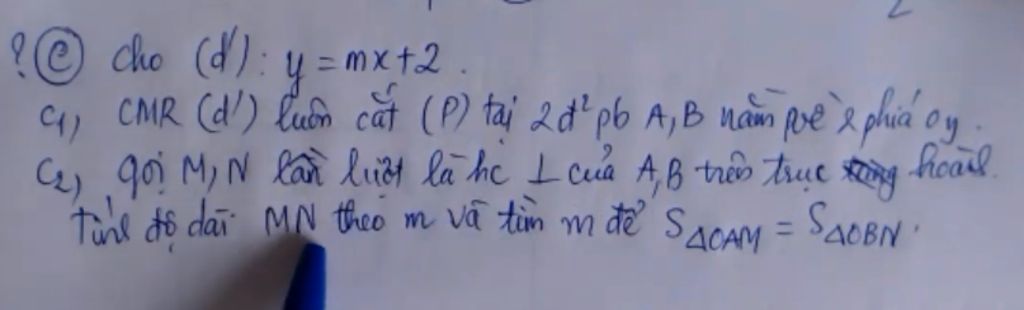 ? ⓔ Cho (d'): y = mx + 2.
c₁) CMR (d') luôn cắt (P) tại 2đ² pb A, B nằm về 2 phía oy.
c₂) gọi M, N lần lượt là hc ⊥ của A, B trên trục hoành.
Tính độ dài MN theo m và tìm m để S△OAM = S△OBN.